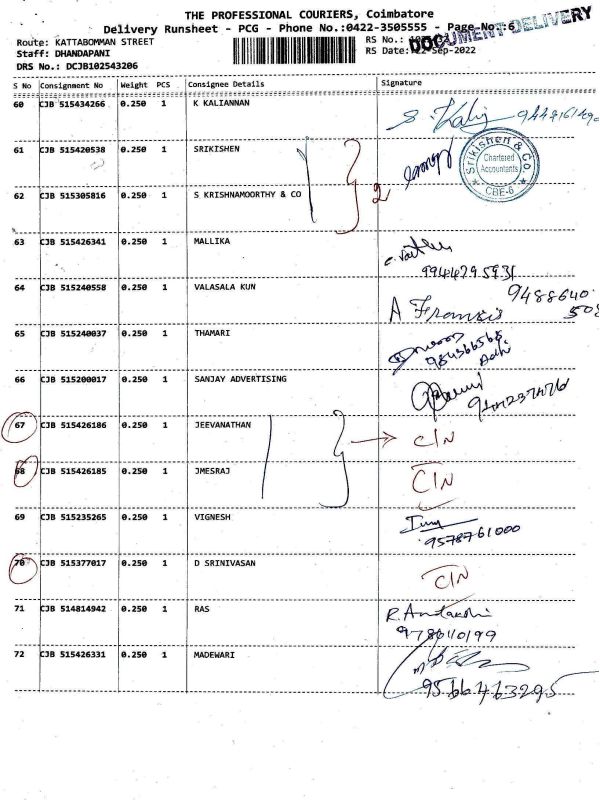 THE PROFESSIONAL COURIERS, Coimbatore
Delivery Runsheet - PCG - Phone No.:0422-3505555 - Page No:6
DOCUMENT DELIVERY
Route: KATTABOMMAN STREET
RS No.:
Staff: DHANDAPANI
RS Date: 22-Sep-2022
DRS No.: DCJB102543206
S No Consignment No Weight PCS Consignee Details Signature
60 CJB 515434266 0.250 1 K KALIANNAN
61 CJB 515420538 0.250 1 SRIKISHEN
Srikishen & Co.
Chartered
Accountants
CBE-6
62 CJB 515305816 0.250 1 S KRISHNAMOORTHY & CO
2
63 CJB 515426341 0.250 1 MALLIKA
9944295931
64 CJB 515240558 0.250 1 VALASALA KUN
A Francis 9488640
508
65 CJB 515240037 0.250 1 THAMARI
984366568
66 CJB 515200017 0.250 1 SANJAY ADVERTISING
67 CJB 515426186 0.250 1 JEEVANATHAN C/N
68 CJB 515426185 0.250 1 JMESRAJ C/N
69 CJB 515235265 0.250 1 VIGNESH
9578761000
70 CJB 515377017 0.250 1 D SRINIVASAN C/N
71 CJB 514814942 0.250 1 RAS
72 CJB 515426331 0.250 1 MADEWARI
9566463295